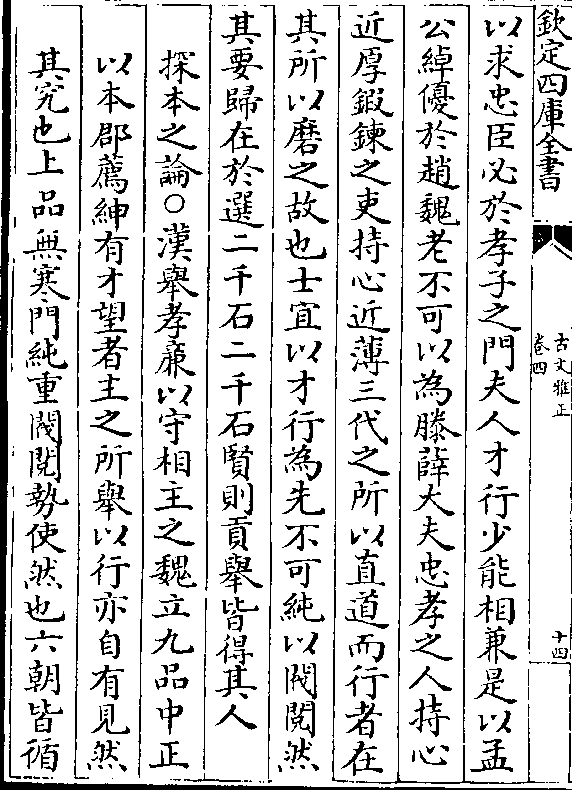 欽定四庫全書
古文雅正
卷四
十四
以求忠臣必於孝子之門夫人才行少能相兼是以孟
公綽優於趙魏老不可以為滕薛大夫忠孝之人持心
近厚鍛鍊之吏持心近薄三代之所以直道而行者在
其所以磨之故也士宜以才行為先不可純以閥閱然
其要歸在於選二千石二千石賢則貢舉皆得其人
探本之論○漢舉孝亷以守相主之魏立九品中正
以本郡薦紳有才望者主之所舉以行亦自有見然
其究也上品無寒門純重閥閱勢使然也六朝皆循